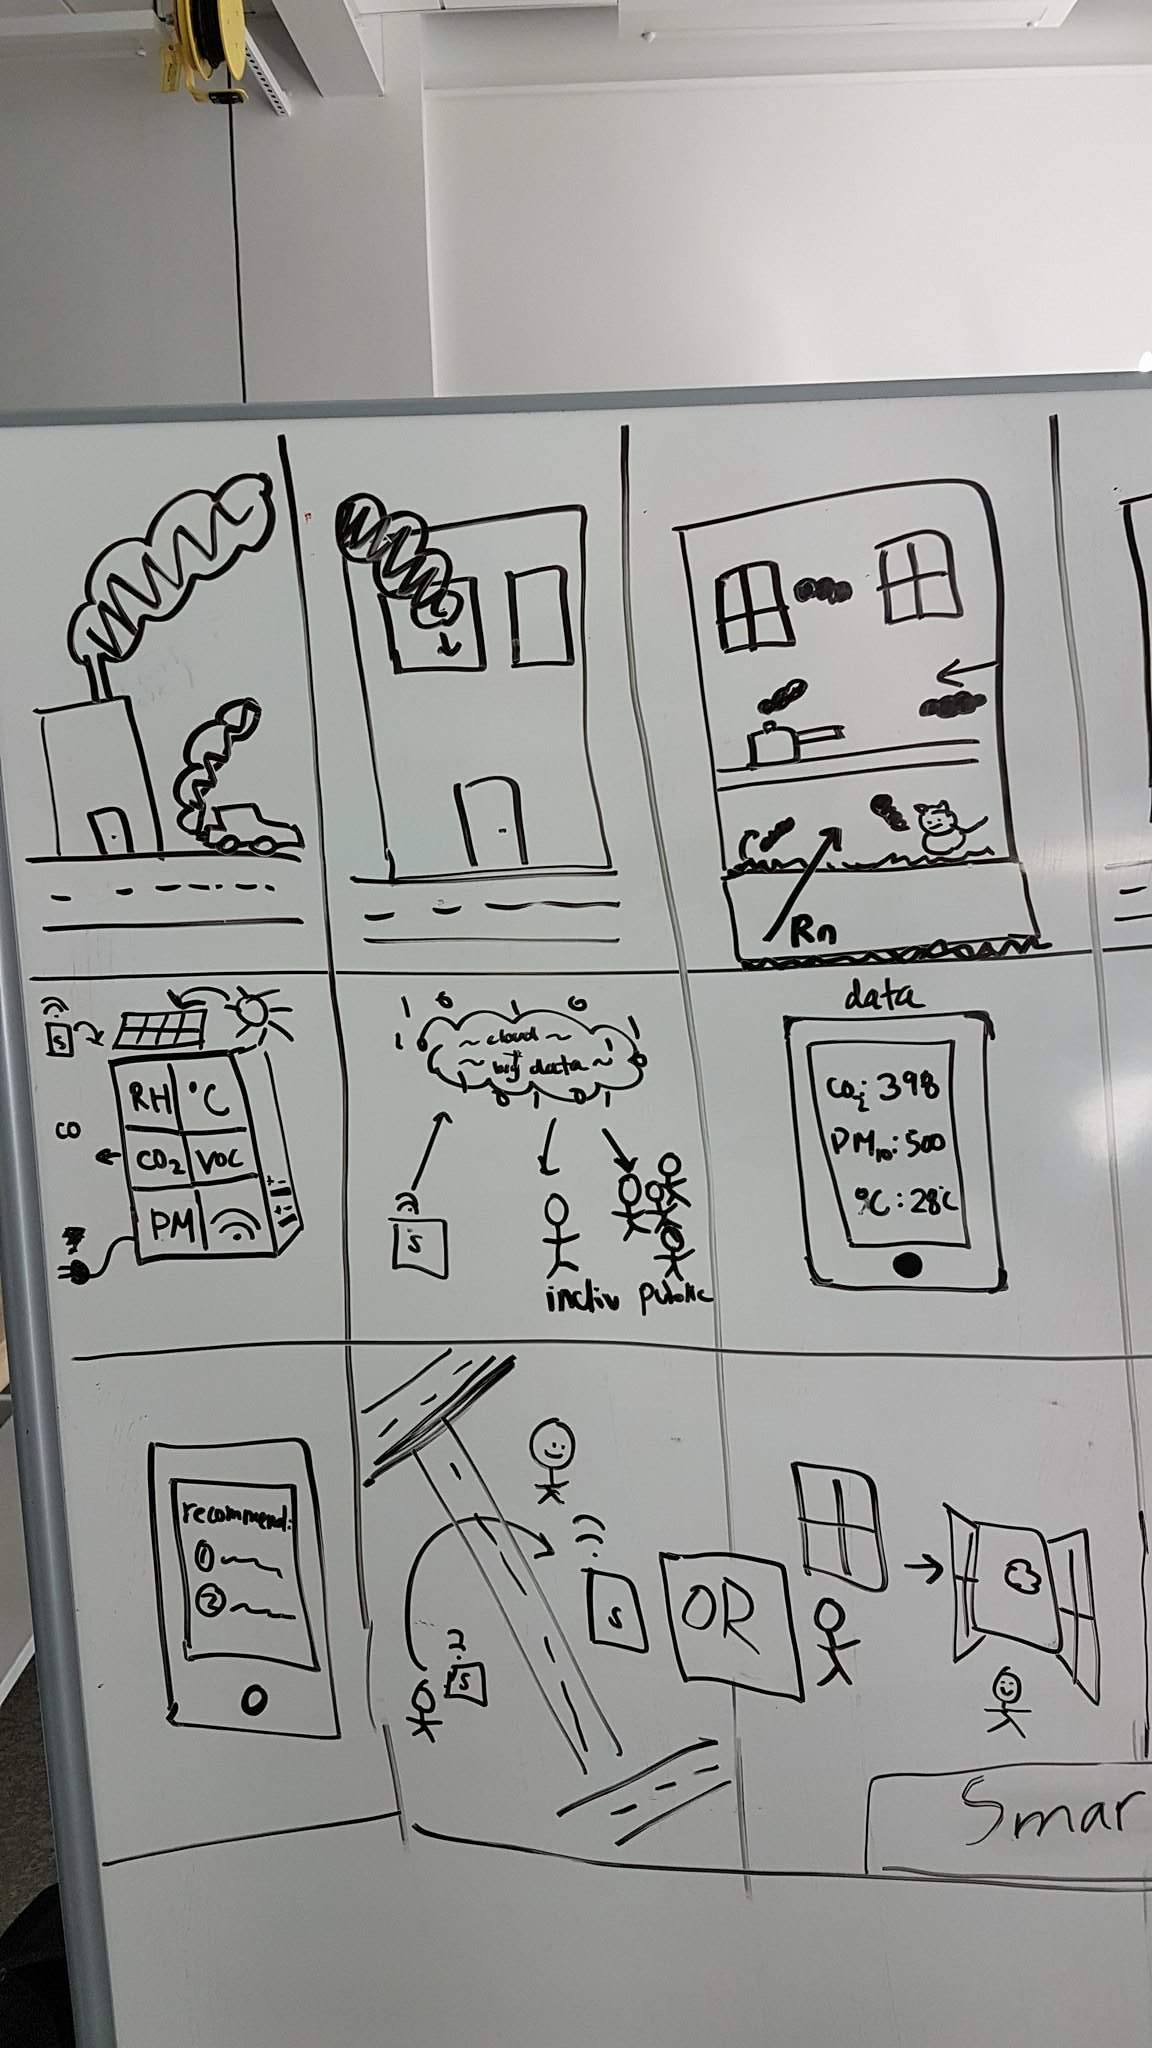 Rn
S
RH °C
CO
CO2 VOC
PM
+ -
+ -
1 0 1 0 1
1 0 1 0
~ cloud ~
~ big data ~
0 1 0 1
S
indiv public
data
CO2: 398
PM10: 500
°C: 28°C
recommend:
1
2
?
S
S
OR
Smar